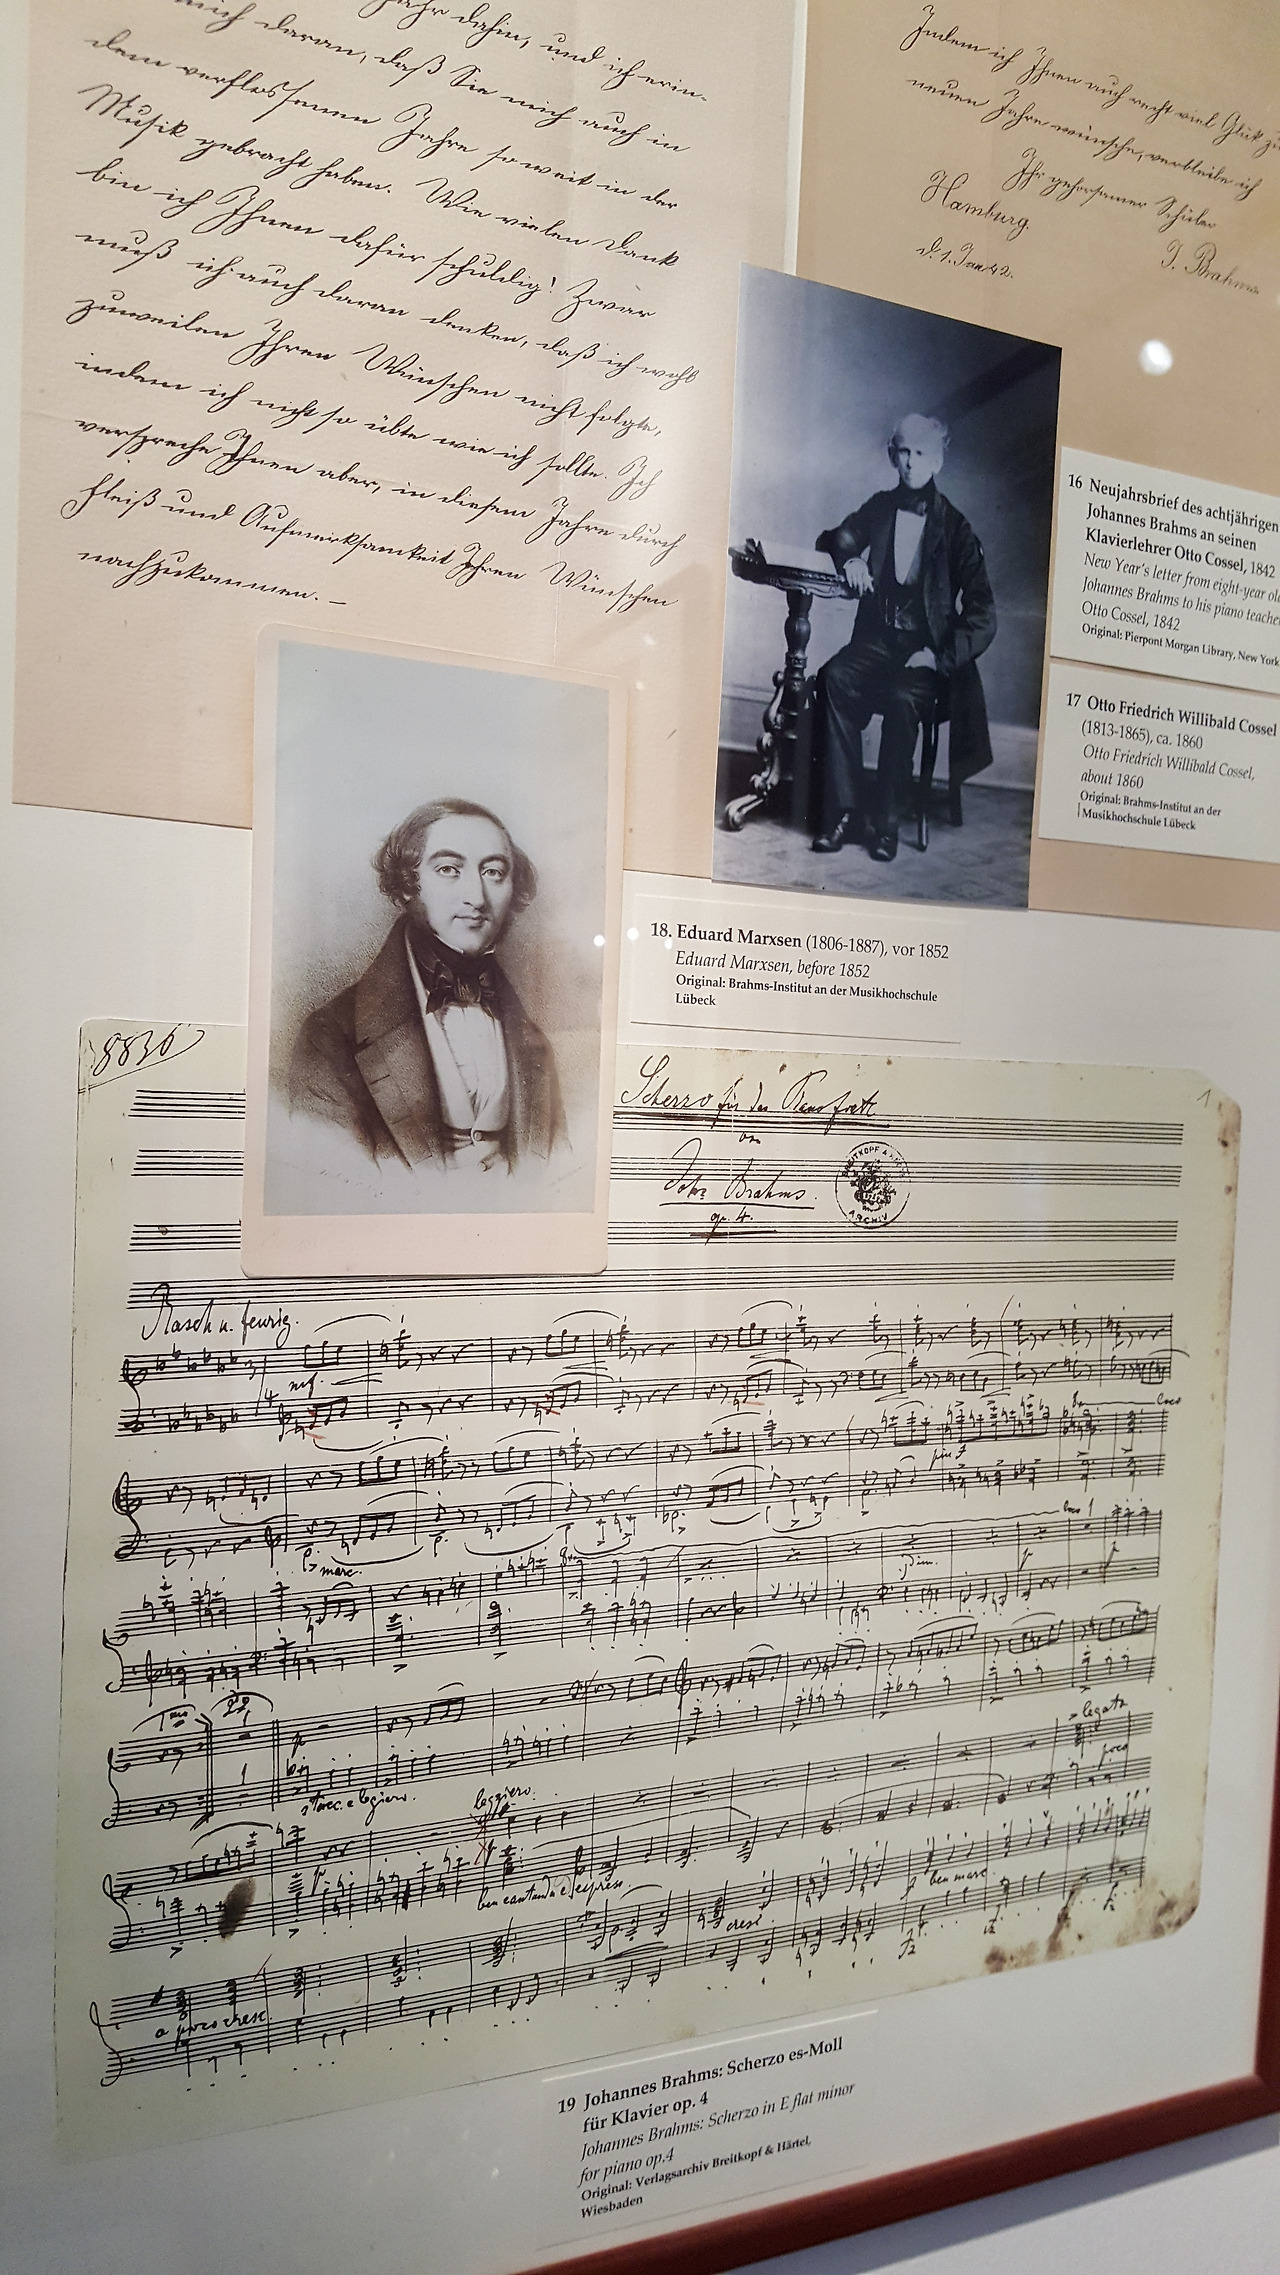 Jahr dahin, und ich erin-
mich daran, daß Sie mich auch in
dem verflossenen Jahre so weit in der
Musik gebracht haben. Wie vielen Dank
bin ich Ihnen dafür schuldig! Zwar
muß ich auch daran denken, daß ich wohl
zuweilen Ihren Wünschen nicht folgte,
indem ich nicht so übte wie ich sollte. Ich
verspreche Ihnen aber, in diesem Jahre durch
Fleiß und Aufmerksamkeit Ihren Wünschen
nachzukommen. –
Indem ich Ihnen auch recht viel Glück zu
neuen Jahre wünsche, verbleibe ich
Ihr gehorsamer Schüler
Hamburg.
J. Brahms
d. 1. Jan 42.
16 Neujahrsbrief des achtjährigen
Johannes Brahms an seinen
Klavierlehrer Otto Cossel, 1842
New Year's letter from eight-year old
Johannes Brahms to his piano teacher
Otto Cossel, 1842
Original: Pierpont Morgan Library, New York
17 Otto Friedrich Willibald Cossel
(1813-1865), ca. 1860
Otto Friedrich Willibald Cossel,
about 1860
Original: Brahms-Institut an der
Musikhochschule Lübeck
18. Eduard Marxsen (1806-1887), vor 1852
Eduard Marxsen, before 1852
Original: Brahms-Institut an der Musikhochschule
Lübeck
8836
1
Scherzo für das Pianoforte
von
Johs Brahms.
op. 4.
BREITKOPF &
ARCHIV
Rasch u. feurig.
mf.
8va
loco
più f
marc.
8va
loco
dim.
p
1ma
2da
p
stacc. e legiero.
legato
poco
leggiero.
ben cantando ed espress.
ben marc.
cresc.
a poco cresc.
19 Johannes Brahms: Scherzo es-Moll
für Klavier op. 4
Johannes Brahms: Scherzo in E flat minor
for piano op.4
Original: Verlagsarchiv Breitkopf & Härtel,
Wiesbaden